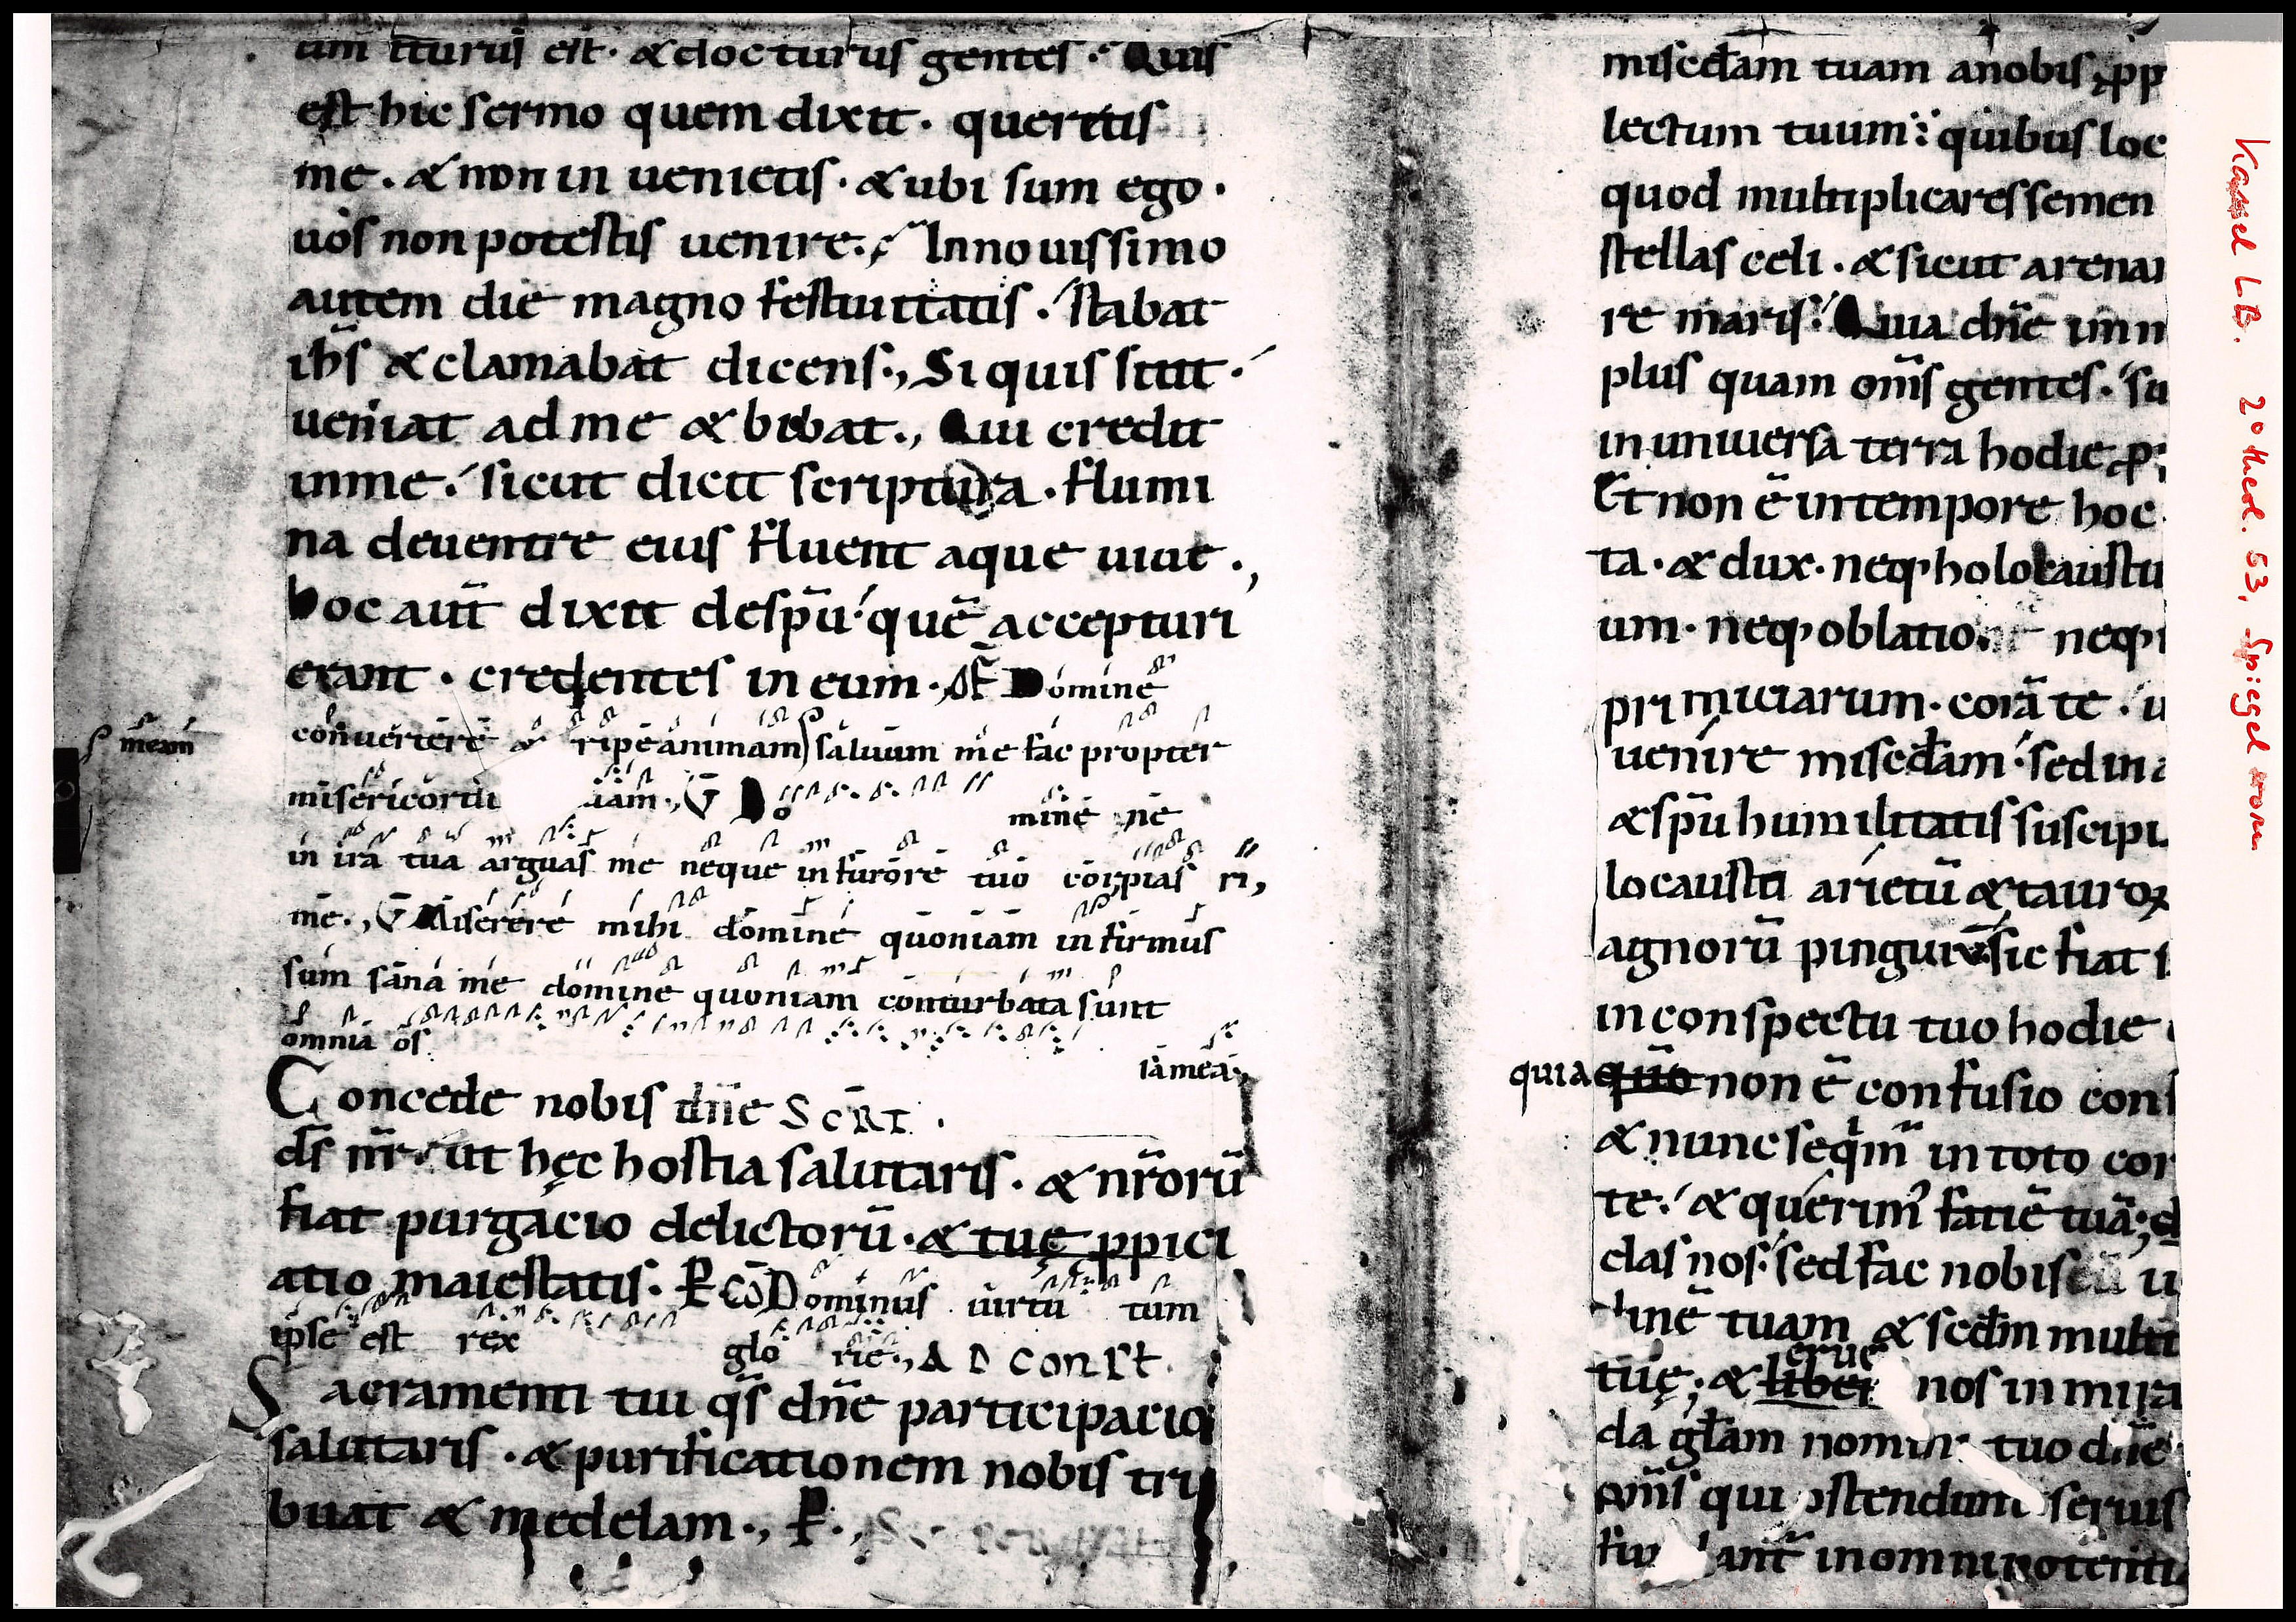 um iturus est· & docturus gentes· Quis
est hic sermo quem dixit· queretis
me· & non in uenietis· & ubi sum ego·
uos non potestis uenire· In nouissimo
autem die magno festiuitatis· stabat
ih̄s & clamabat dicens·, Si quis sitit·
ueniat ad me & bibat·, Qui credit
in me· sicut dicit scriptura· flumi
na de uentre eius fluent aque uiue·,
hoc aut̄ dixit de sp̄u· quē accepturi
erant· credentes in eum· Of̄ Domine
conuertere & ripe animam saluum me fac propter
meam
misericordi uam·, V̄ Do mine ne
in ira tua arguas me neque in furore tuo corripias
me·, V̄ Miserere mihi domine quoniam infirmus
sum sana me domine quoniam conturbata sunt
omnia os
sa mea·,
Concede nobis dn̄e SECRT·
ds̄ nr̄· ut hęc hostia salutaris· & nr̄orū
fiat purgacio delictorū· & tuę ppici
atio maiestatis· P̱ CŌ Dominus uirtu tum
ipse est rex glo rie·, AD CONPLT
Sacramenti tui qs̄ dn̄e participacio
salutaris· & purificationem nobis tri
buat & medelam·, P̱·,
misedam tuam a nobis, pp
lectum tuum· quibus loc
quod multiplicares semen
stellas celi· & sicut arenam
re maris· Quia dn̄e imin
plus quam om̄s gentes· su
in uniuersa terra hodie, p
Et non ē in tempore hoc
ta· & dux· neq· holocaustu
um· neq· oblatio neq·
primiciarum· corā te· u
uenire misedam· sed in a
& sp̄u humilitatis suscipi
locausta arietū & tauroꝝ
agnorū pinguiū· sic fiat
in conspectu tuo hodie
quia quō non ē confusio conf
& nunc seq̄m̄ in toto cor
te· & querim᾿ faciē tuā; 
das nos· sed fac nobiscū
tinē tuam & scdm multi
tuę; & liber erue nos in mira
da gl̄am nomini tuo dn̄e
om̄s qui ostendunt seruis
fundant̄ in omni potenti
Kassel LB. 2° theol. 53, Spiegel vorn